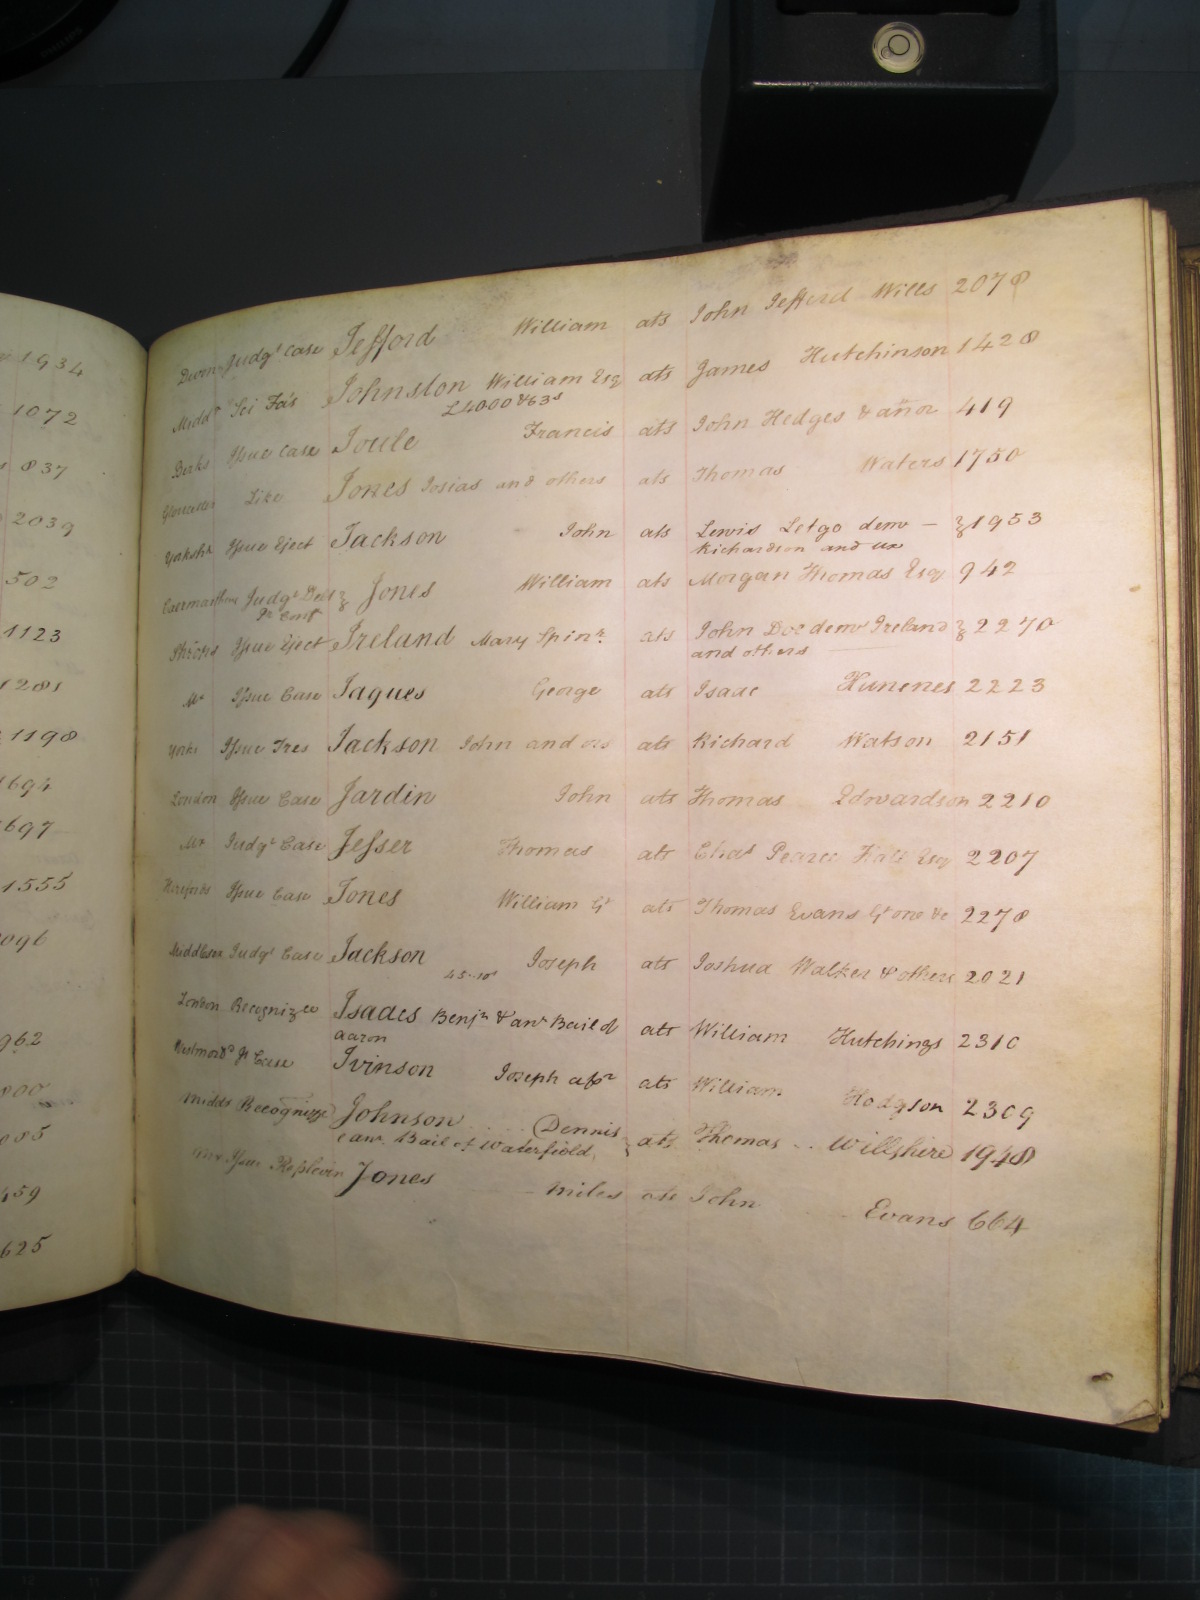 1934
1072
837
2039
502
1123
1281
1198
1694
1697
1555
2096
962
800
459
625
Devon Judgt Case Jefford William ats John Jefford Wills 2078
Middx Sci Fa's Johnston William Esq ats James Hutchinson 1428
£4000 & 63s
Berks Issue Case Joule Francis ats John Hedges & anor 419
Gloucester Like Jones Josias and others ats Thomas Waters 1750
Yorksh Issue Eject Jackson John ats Lewis Letgo dem 1953
Richardson and ux
Caermarthen Judgt Jones William ats Morgan Thomas Esq 942
Issue Eject Ireland Mary Spinr ats John Doe dem Ireland 2270
and others
Mx Issue Case Jaques George ats Isaac 2223
Yorks Issue Tres Jackson John and ors ats Richard Watson 2151
London Issue Case Jardin John ats Thomas Edwardson 2210
Mx Judgt Case Jesser Thomas ats Pearce Esq 2207
Hereford Issue Case Jones William Gt ats Thomas Evans Gt one &c 2278
Middlesex Judgt Case Jackson Joseph ats Joshua Walker & others 2021
45..10s
London Recognizce Isaacs Benjn & anr Bail of ats William Hutchings 2310
Aaron
Westmord Js Case Ivinson Joseph ats William Hodgson 2309
Midds Recognizce Johnson Dennis ats Thomas Willshire 1948
& anr Bail of Waterfield
Issue Replevin Jones Miles ats John Evans 664